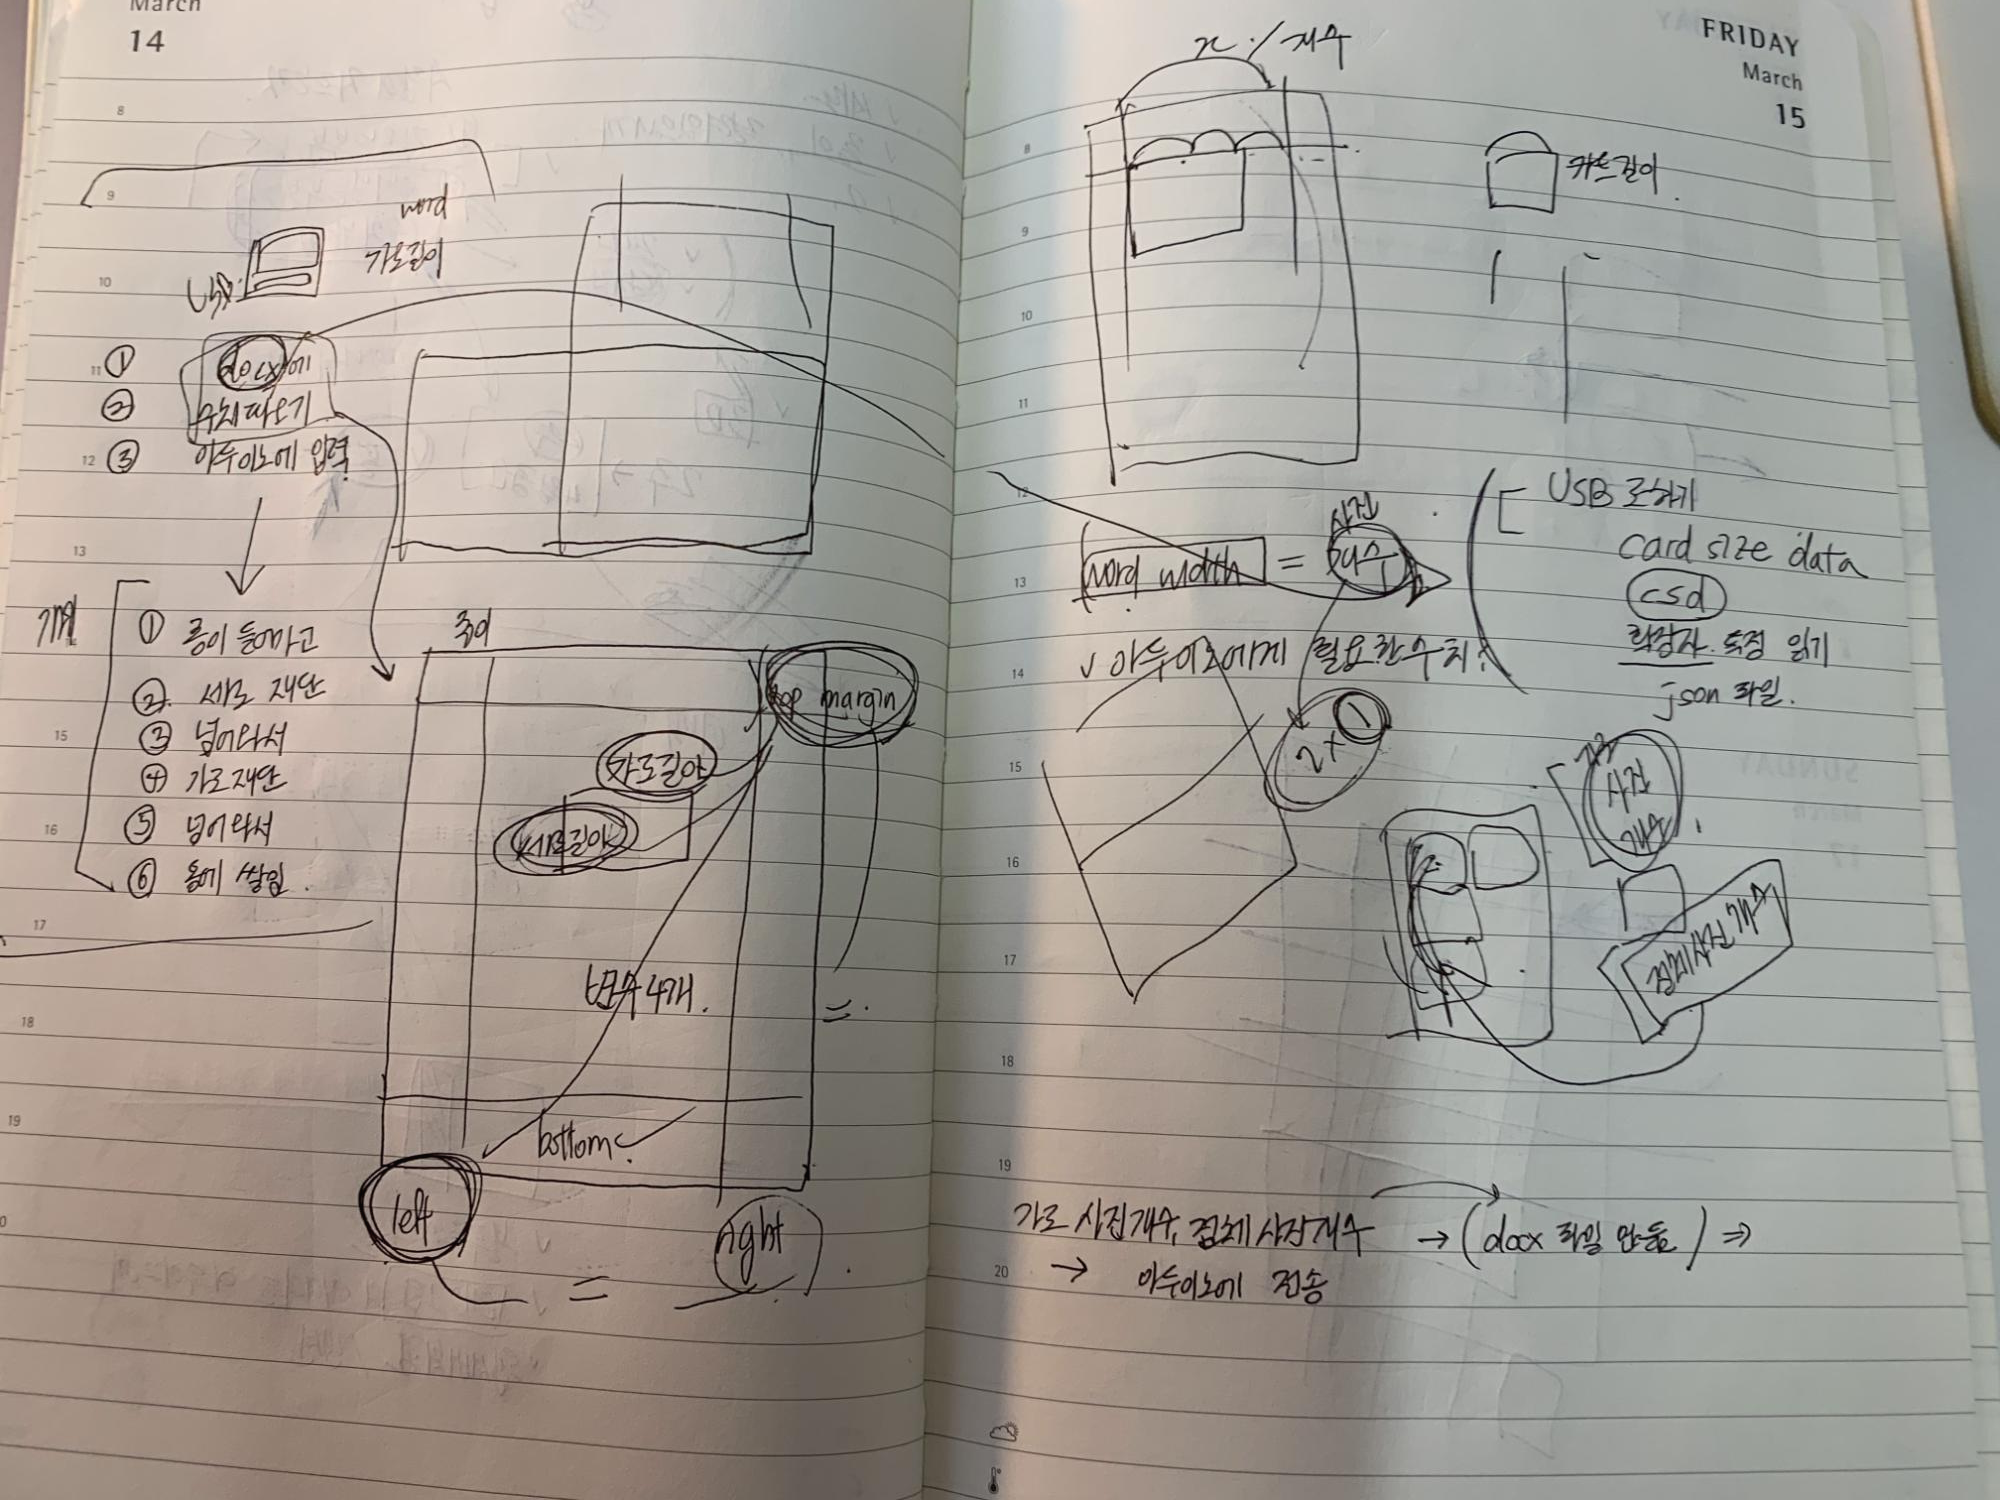 March
14
8
9
word
가로길이
10
USB
11
① docx에
② 수치따오기
12
③ 아두이노에 입력
13
기계
① 종이 들어가고
② 세로 재단
③ 넘어와서
④ 가로재단
⑤ 넘어와서
⑥ 통에 쌓임.
15
16
17
18
19
종이
top margin
가로길이
세로길이
변수 4개.
=
bottom
left
=
right
FRIDAY
March
15
8
9
10
11
12
13
14
15
16
17
18
19
20
카드길이
USB 로하기
card size data
csd
확장자 특정 읽기
json 파일.
사진
word width =
✓ 아두이노에게 필요한수치:
2 × 1
사진
개수
전체사진개수
가로 사진개수, 전체 사진개수 → (docx 파일 만듦) ⇒
→ 아두이노에 전송